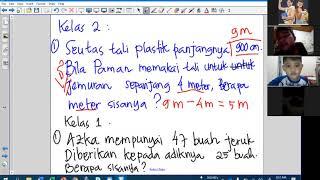 Kelas 2 :
9 m
① Seutas tali plastik panjangnya 900 cm.
Bila Paman memakai tali untuk untuk
Jemuran sepanjang 4 meter, berapa
meter sisanya ? 9 m - 4 m = 5 m
Kelas 1 .
① Azka mempunyai 47 buah jeruk
Diberikan kepada adiknya 25 buah.
Berapa sisanya ?